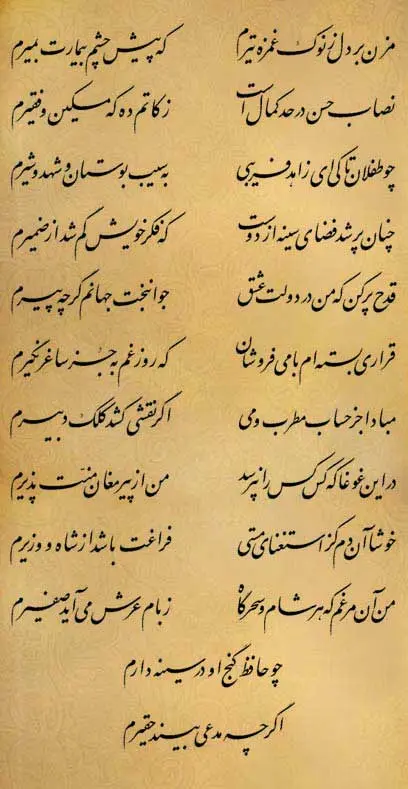 مزن بر دل ز نوک غمزه تیرم که پیش چشم بیمارت بمیرم
نصاب حسن در حد کمال است زکاتم ده که مسکین و فقیرم
چو طفلان تا کی ای زاهد فریبی به سیب بوستان و شهد و شیرم
چنان پر شد فضای سینه از دوست که فکر خویش گم شد از ضمیرم
قدح پر کن که من در دولت عشق جوانبخت جهانم گرچه پیرم
قراری بسته‌ام با می فروشان که روز غم به جز ساغر نگیرم
مبادا جز حساب مطرب و می اگر نقشی کشد کلک دبیرم
در این غوغا که کس کس را نپرسد من از پیر مغان منت پذیرم
خوشا آن دم کز استغنای مستی فراغت باشد از شاه و وزیرم
من آن مرغم که هر شام و سحرگاه ز بام عرش می‌آید صفیرم
چو حافظ گنج او در سینه دارم
اگرچه مدعی بیند حقیرم